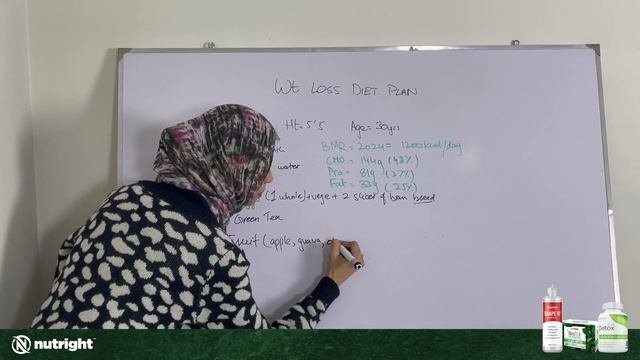 Wt Loss Diet Plan
Ht = 5'5 Age = 30yrs
BMR = 2024 = 1200kcal/day
water CHO = 144g (48%)
Pro = 81g (27%)
Fat = 33g (25%)
(1 whole) + vege + 2 slices of bran bread
Green Tea
Fruit (apple, guava,
nutright
SHAPE IT
Detox